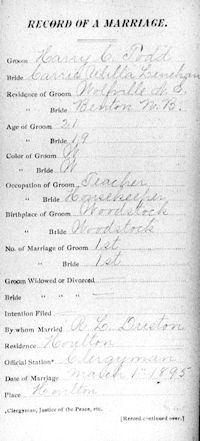 RECORD OF A MARRIAGE.
Groom Harry C. Todd
Bride Carrie Atilla Lenehan
Residence of Groom Wolfville N. S.
" Bride Benton N. B.
Age of Groom 21
" Bride 19
Color of Groom W
" Bride W
Occupation of Groom Teacher
" Bride Housekeeper
Birthplace of Groom Woodstock
" Bride Woodstock
No. of Marriage of Groom 1st
" Bride 1st
Groom Widowed or Divorced
Bride " " "
Intention Filed
By whom Married R. L. Duston
Residence Houlton
Official Station* Clergyman
Date of Marriage March 1st 1895
Place Houlton
*Clergyman, Justice of the Peace, etc.
[Record continued over.]